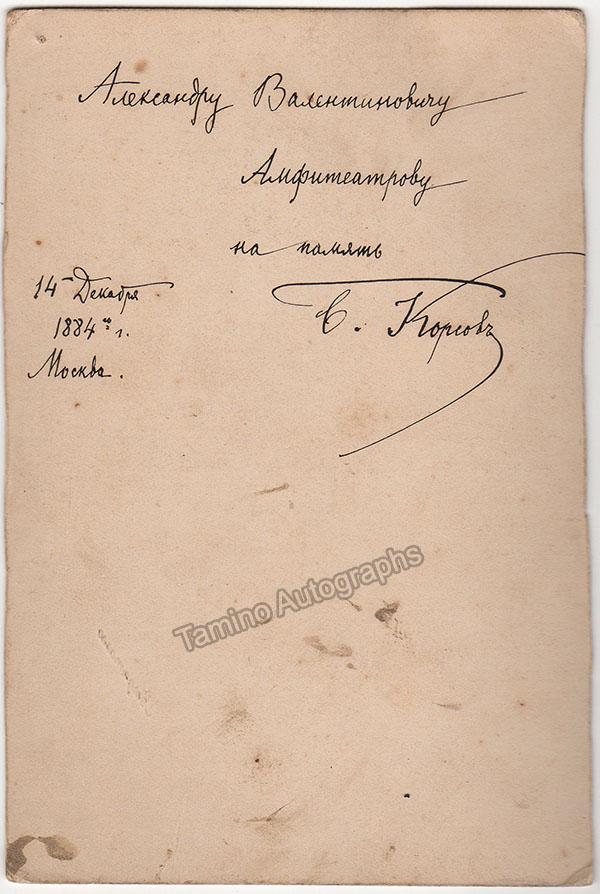 Александру Валентиновичу
Амфитеатрову
на память
14го Декабря
1884го г.
Москва.
Б. Корсовъ
Tamino Autographs